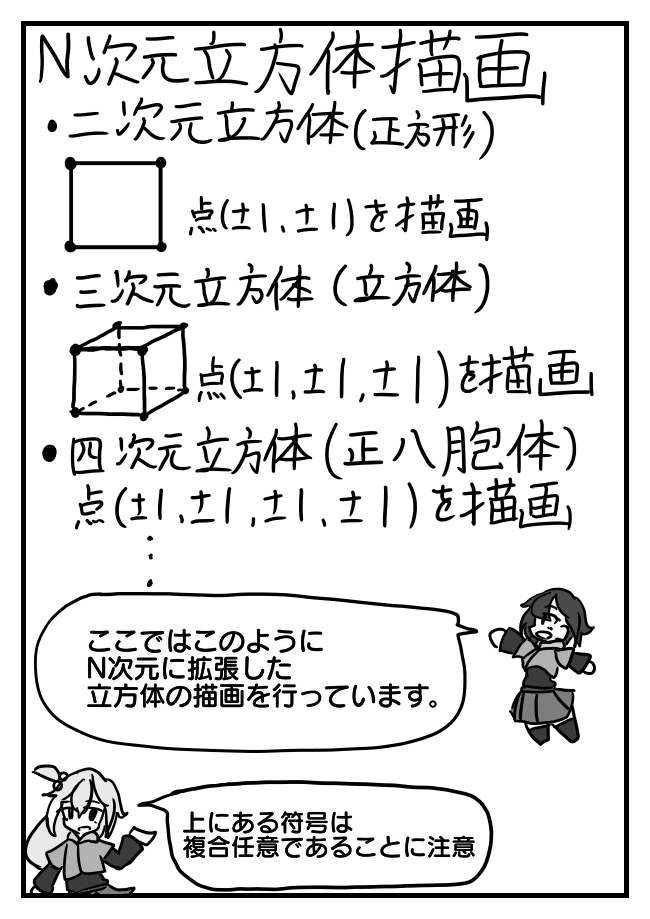 N次元立方体描画
・二次元立方体(正方形)
点(±1,±1)を描画
・三次元立方体(立方体)
点(±1,±1,±1)を描画
・四次元立方体(正八胞体)
点(±1,±1,±1,±1)を描画
⋮
ここではこのように
N次元に拡張した
立方体の描画を行っています。
上にある符号は
複合任意であることに注意